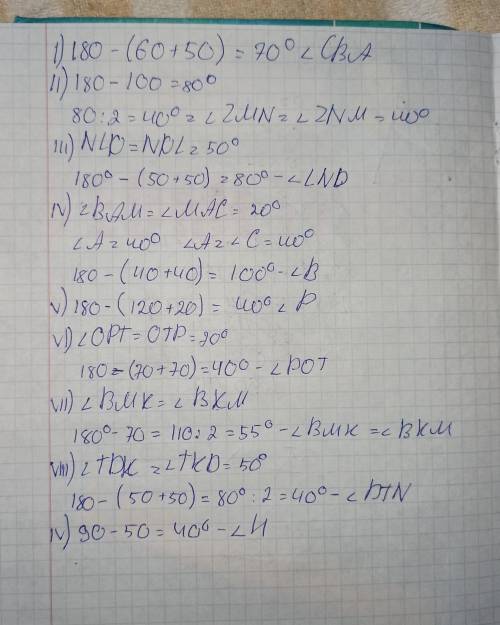 I) 180 - (60 + 50) = 70° ∠CBA
II) 180 - 100 = 80°
80 : 2 = 40° = ∠ZMN = ∠ZNM = 40°
III) NLD = NDL = 50°
180° - (50 + 50) = 80° - ∠LND
IV) ∠BAM = ∠MAC = 20°
∠A = 40° ∠A = ∠C = 40°
180 - (40 + 40) = 100° - ∠B
V) 180 - (120 + 20) = 40° ∠P
VI) ∠OPT = OTP = 70°
180 - (70 + 70) = 40° - ∠POT
VII) ∠BMK = ∠BKM
180° - 70 = 110 : 2 = 55° - ∠BMK = ∠BKM
VIII) ∠TDK = ∠TKD = 50°
180 - (50 + 50) = 80° : 2 = 40° - ∠DTN
IV) 90 - 50 = 40° - ∠H